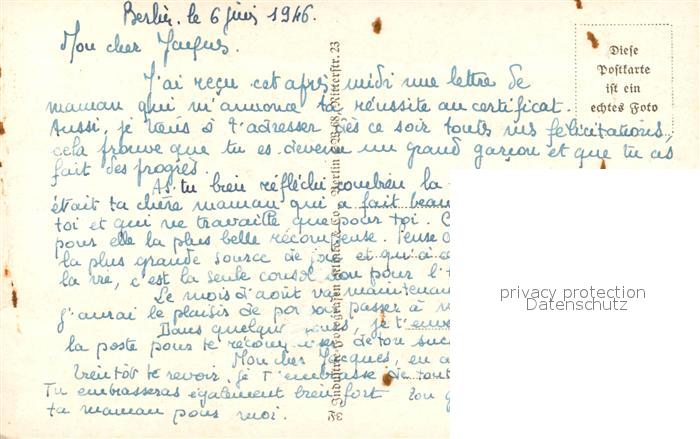 Berlin, le 6 juin 1946.
Mon cher Jacques.
J'ai reçu cet après midi une lettre de
maman qui m'annonce ta réussite au certificat.
Aussi, je tiens à t'adresser dès ce soir toutes mes félicitations,
cela prouve que tu es devenu un grand garçon et que tu as
fait des progrès.
As tu bien réfléchi combien la
était ta chère maman qui a fait beau
toi et qui ne travaille que pour toi. C
pour elle la plus belle récompense. Pense
la plus grande source de joie et qu'à
la vie, c'est la seule consolation pour l'
Le mois d'août va maintenant
j'aurai le plaisir de passer à
Dans quelques jours, je t'
la poste pour te récompenser de ton suc
Mon cher Jacques, en a
bientôt te revoir, je t'embrasse de tout
Tu embrasseras également bien fort ton
ta maman pour moi.
Diese
Postkarte
ist ein
echtes Foto
Industrie-Fotografen Klinke & Co. Berlin SW 68, Ritterstr. 23
privacy protection
Datenschutz